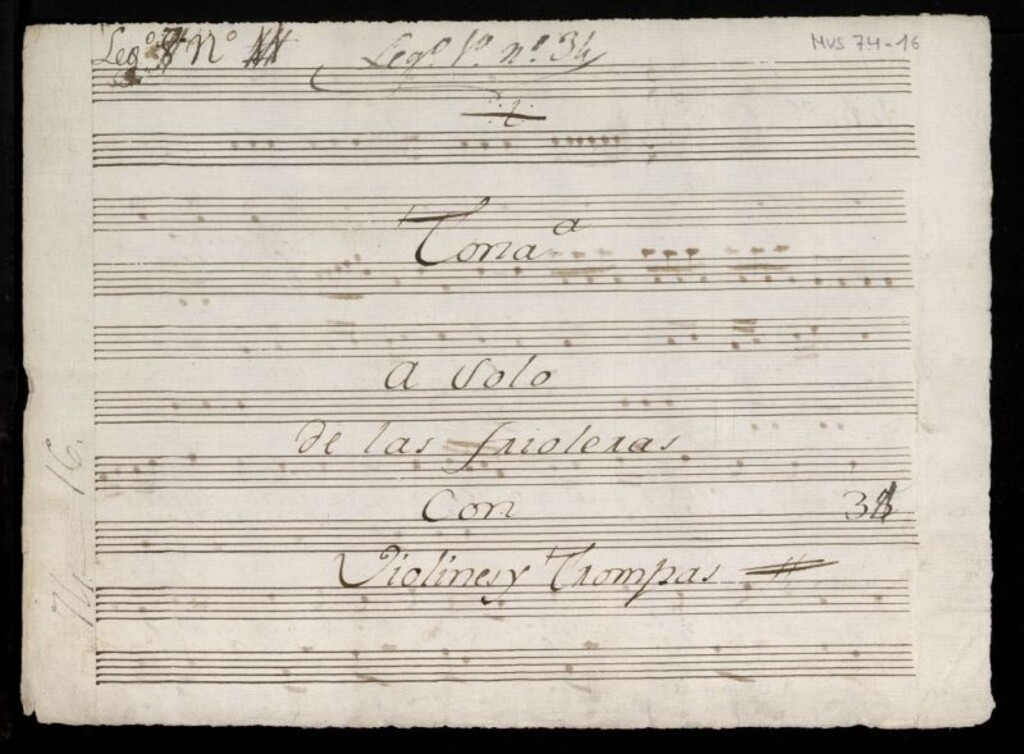 Leg.º Nº
Leg.º 1º. nº. 34
MUS 74-16
Tona.ª
a Solo
de las frioleras
Con
Violines y Trompas
74 - 16.